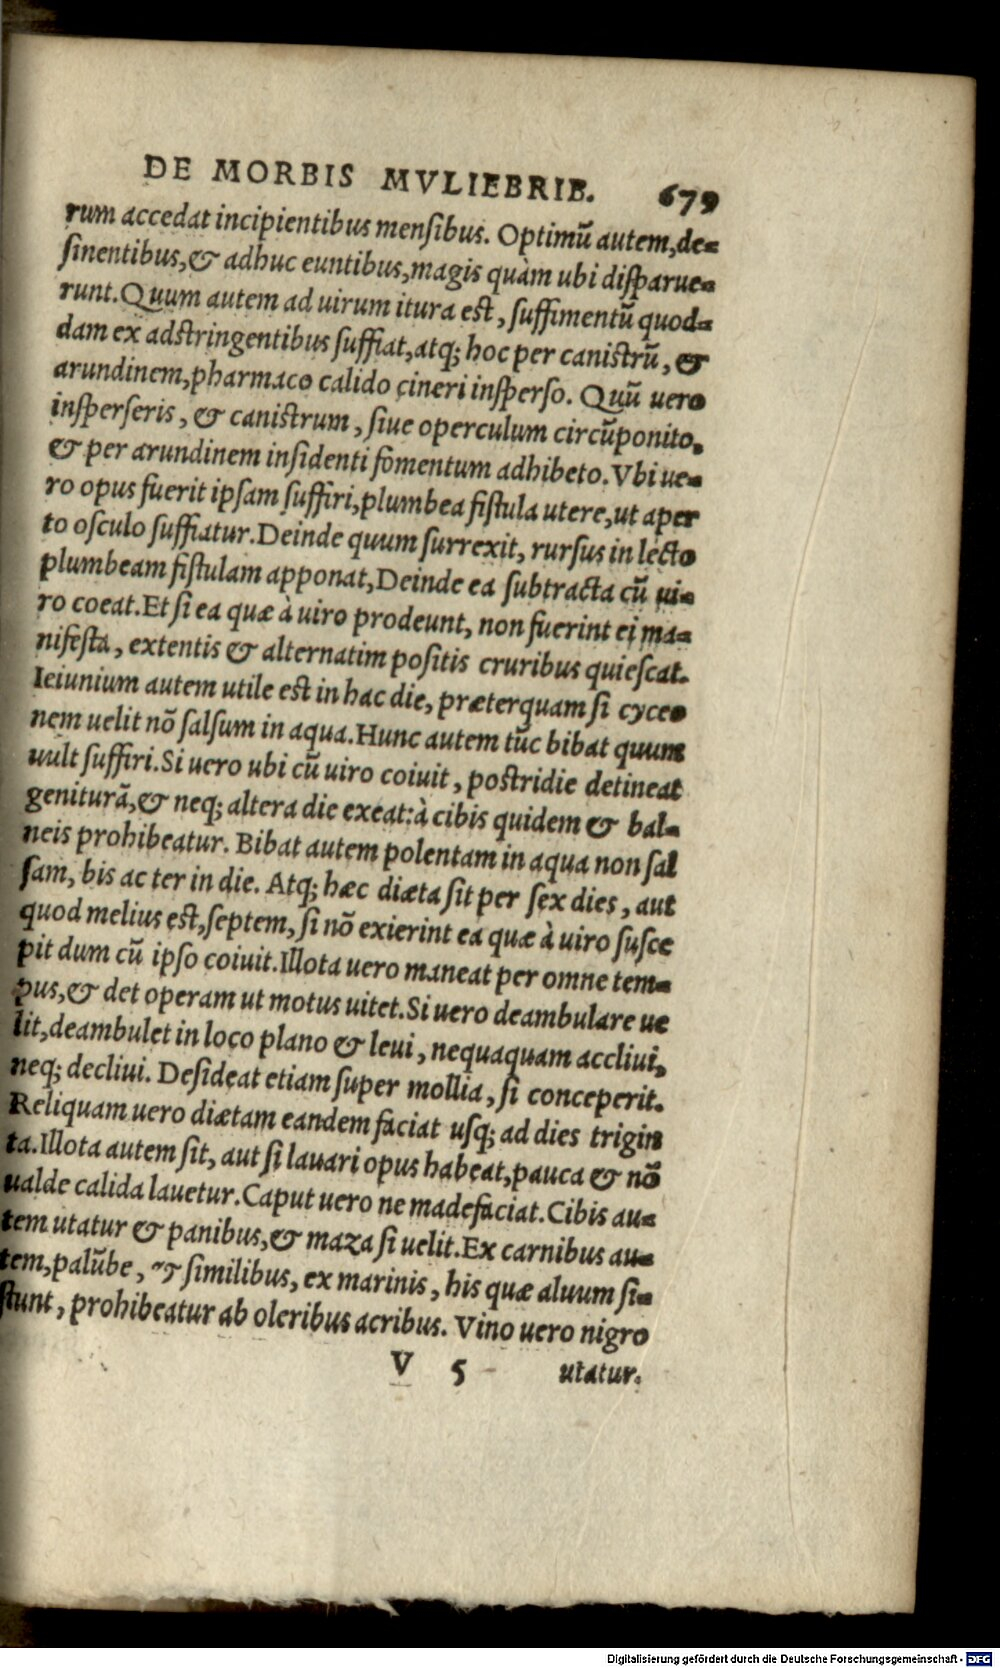 DE MORBIS MVLIEBRIB. 679
rum accedat incipientibus mensibus. Optimũ autem,de-
sinentibus,& adhuc euntibus,magis quàm ubi disparue-
runt.Quum autem ad uirum itura est, suffimentũ quod-
dam ex adstringentibus suffiat,atq; hoc per canistrũ, &
arundinem,pharmaco calido cineri insperso. Quũ uero
insperseris, & canistrum, siue operculum circũponito,
& per arundinem insidenti fomentum adhibeto.Vbi ue-
ro opus fuerit ipsam suffiri,plumbea fistula utere,ut aper
to osculo suffiatur.Deinde quum surrexit, rursus in lecto
plumbeam fistulam apponat,Deinde ea subtracta cũ ui-
ro coeat.Et si ea quæ à uiro prodeunt, non fuerint ei ma-
nifesta, extentis & alternatim positis cruribus quiescat.
Ieiunium autem utile est in hac die, præterquam si cyceo
nem uelit nõ salsum in aqua.Hunc autem tũc bibat quum
uult suffiri.Si uero ubi cũ uiro coiuit, postridie detineat
geniturã,& neq; altera die exeat:à cibis quidem & bal-
neis prohibeatur. Bibat autem polentam in aqua non sal
sam, bis ac ter in die. Atq; hæc diæta sit per sex dies, aut
quod melius est,septem, si nõ exierint ea quæ à uiro susce
pit dum cũ ipso coiuit.Illota uero maneat per omne tem-
pus,& det operam ut motus uitet.Si uero deambulare ue
lit,deambulet in loco plano & leui, nequaquam accliui,
neq; decliui. Desideat etiam super mollia, si conceperit.
Reliquam uero diætam eandem faciat usq; ad dies trigin
ta.Illota autem sit, aut si lauari opus habeat,pauca & nõ
ualde calida lauetur.Caput uero ne madefaciat.Cibis au-
tem utatur & panibus,& maza si uelit.Ex carnibus au-
tem,palũbe, & similibus, ex marinis, his quæ aluum si-
stunt, prohibeatur ab oleribus acribus. Vino uero nigro
V 5 utatur.
Digitalisierung gefördert durch die Deutsche Forschungsgemeinschaft - DFG